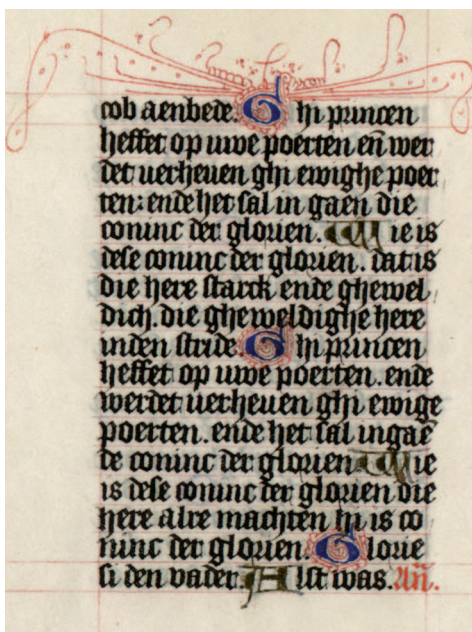 cob aenbede. Ghi princen
heffet op uwe poerten en̄ wer
det verheven ghi ewighe poer
ten: ende het sal in gaen die
coninc der glorien. Wie is
dese coninc der glorien. dat is
die here starck ende ghewel
dich. die gheweldighe here
inden stride. Ghi princen
heffet op uwe poerten. ende
werdet verheven ghi ewige
poerten. ende het sal ingaē
de coninc der glorien. Wie
is dese coninc der glorien die
here alre machten hi is co
ninc der glorien. Glorie
si den vader. Alst was. An̄.